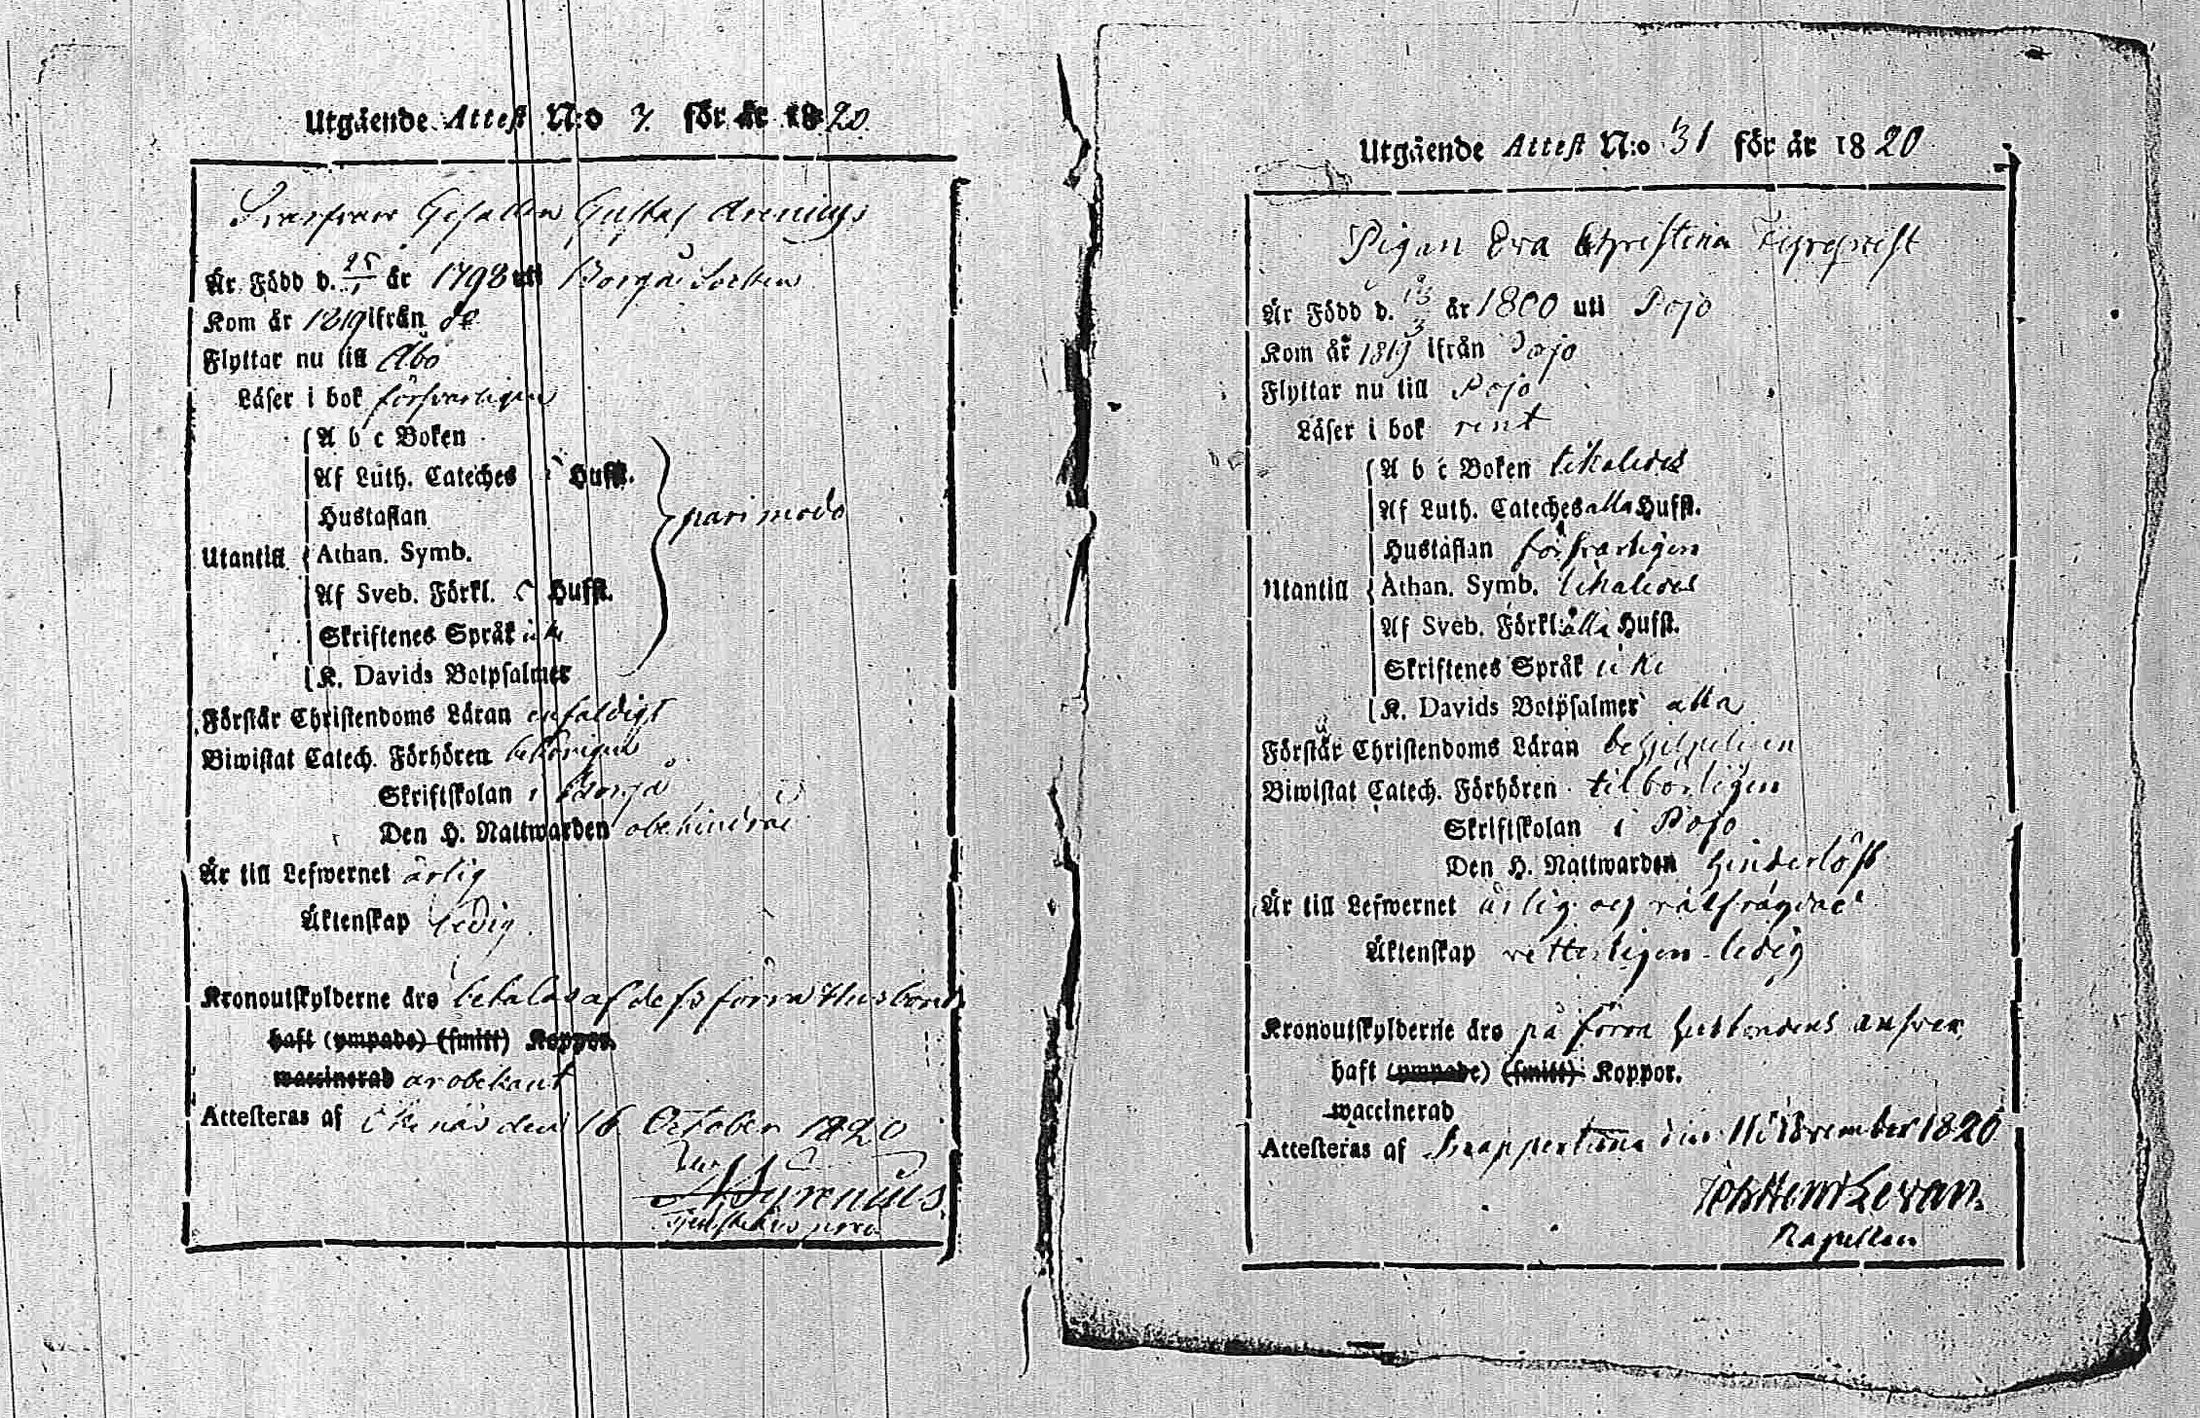 Utgående Attest N:o 7. för år 1820.
Gesällen Gustaf Arenius
Är Född d. 25/1 år 1798 uti Borgå Socken
Kom år 1819 ifrån do
Flyttar nu till Åbo
Läser i bok försvarligen
A b c Boken
Af Luth. Cateches Hufst.
Hustaflan
pari modo
Utantill Athan. Symb.
Af Sveb. Förkl. Hufst.
Skriftenes Språk icke
K. Davids Botpsalmer
Förstår Christendoms Läran enfaldigt
Biwistat Catech. Förhören behörigen
Skriftskolan i Borgå
Den H. Nattwarden obehindrad
Är till Lefwernet ärlig
Äktenskap ledig.
Kronoutskylderne äro betalas af dess förra Husbonde
haft (ympade) (smitt) Koppor.
waccinerad är obekant
Attesteras af Ekenäs den 16 October 1820
Utgående Attest N:o 31 för år 1820
Pigan Eva Christina
Är Född d. 13/3 år 1800 uti Pojo
Kom år 1819 ifrån Pojo
Flyttar nu till Pojo
Läser i bok rent
A b c Boken likaledes
Af Luth. Cateches alla Hufst.
Hustaflan försvarligen
Utantill Athan. Symb. likaledes
Af Sveb. Förkl. alla Hufst.
Skriftenes Språk icke
K. Davids Botpsalmer alla
Förstår Christendoms Läran
Biwistat Catech. Förhören tilbörligen
Skriftskolan i Pojo
Den H. Nattwarden hinderlöst
Är till Lefwernet ärlig och välfrägdad
Äktenskap vetterligen ledig
Kronoutskylderne äro på förra husbondens ansvar.
haft (ympade) (smitt) Koppor.
waccinerad
Attesteras af Snappertuna den 11 November 1820
Joh Henr Levan.
Kapellan